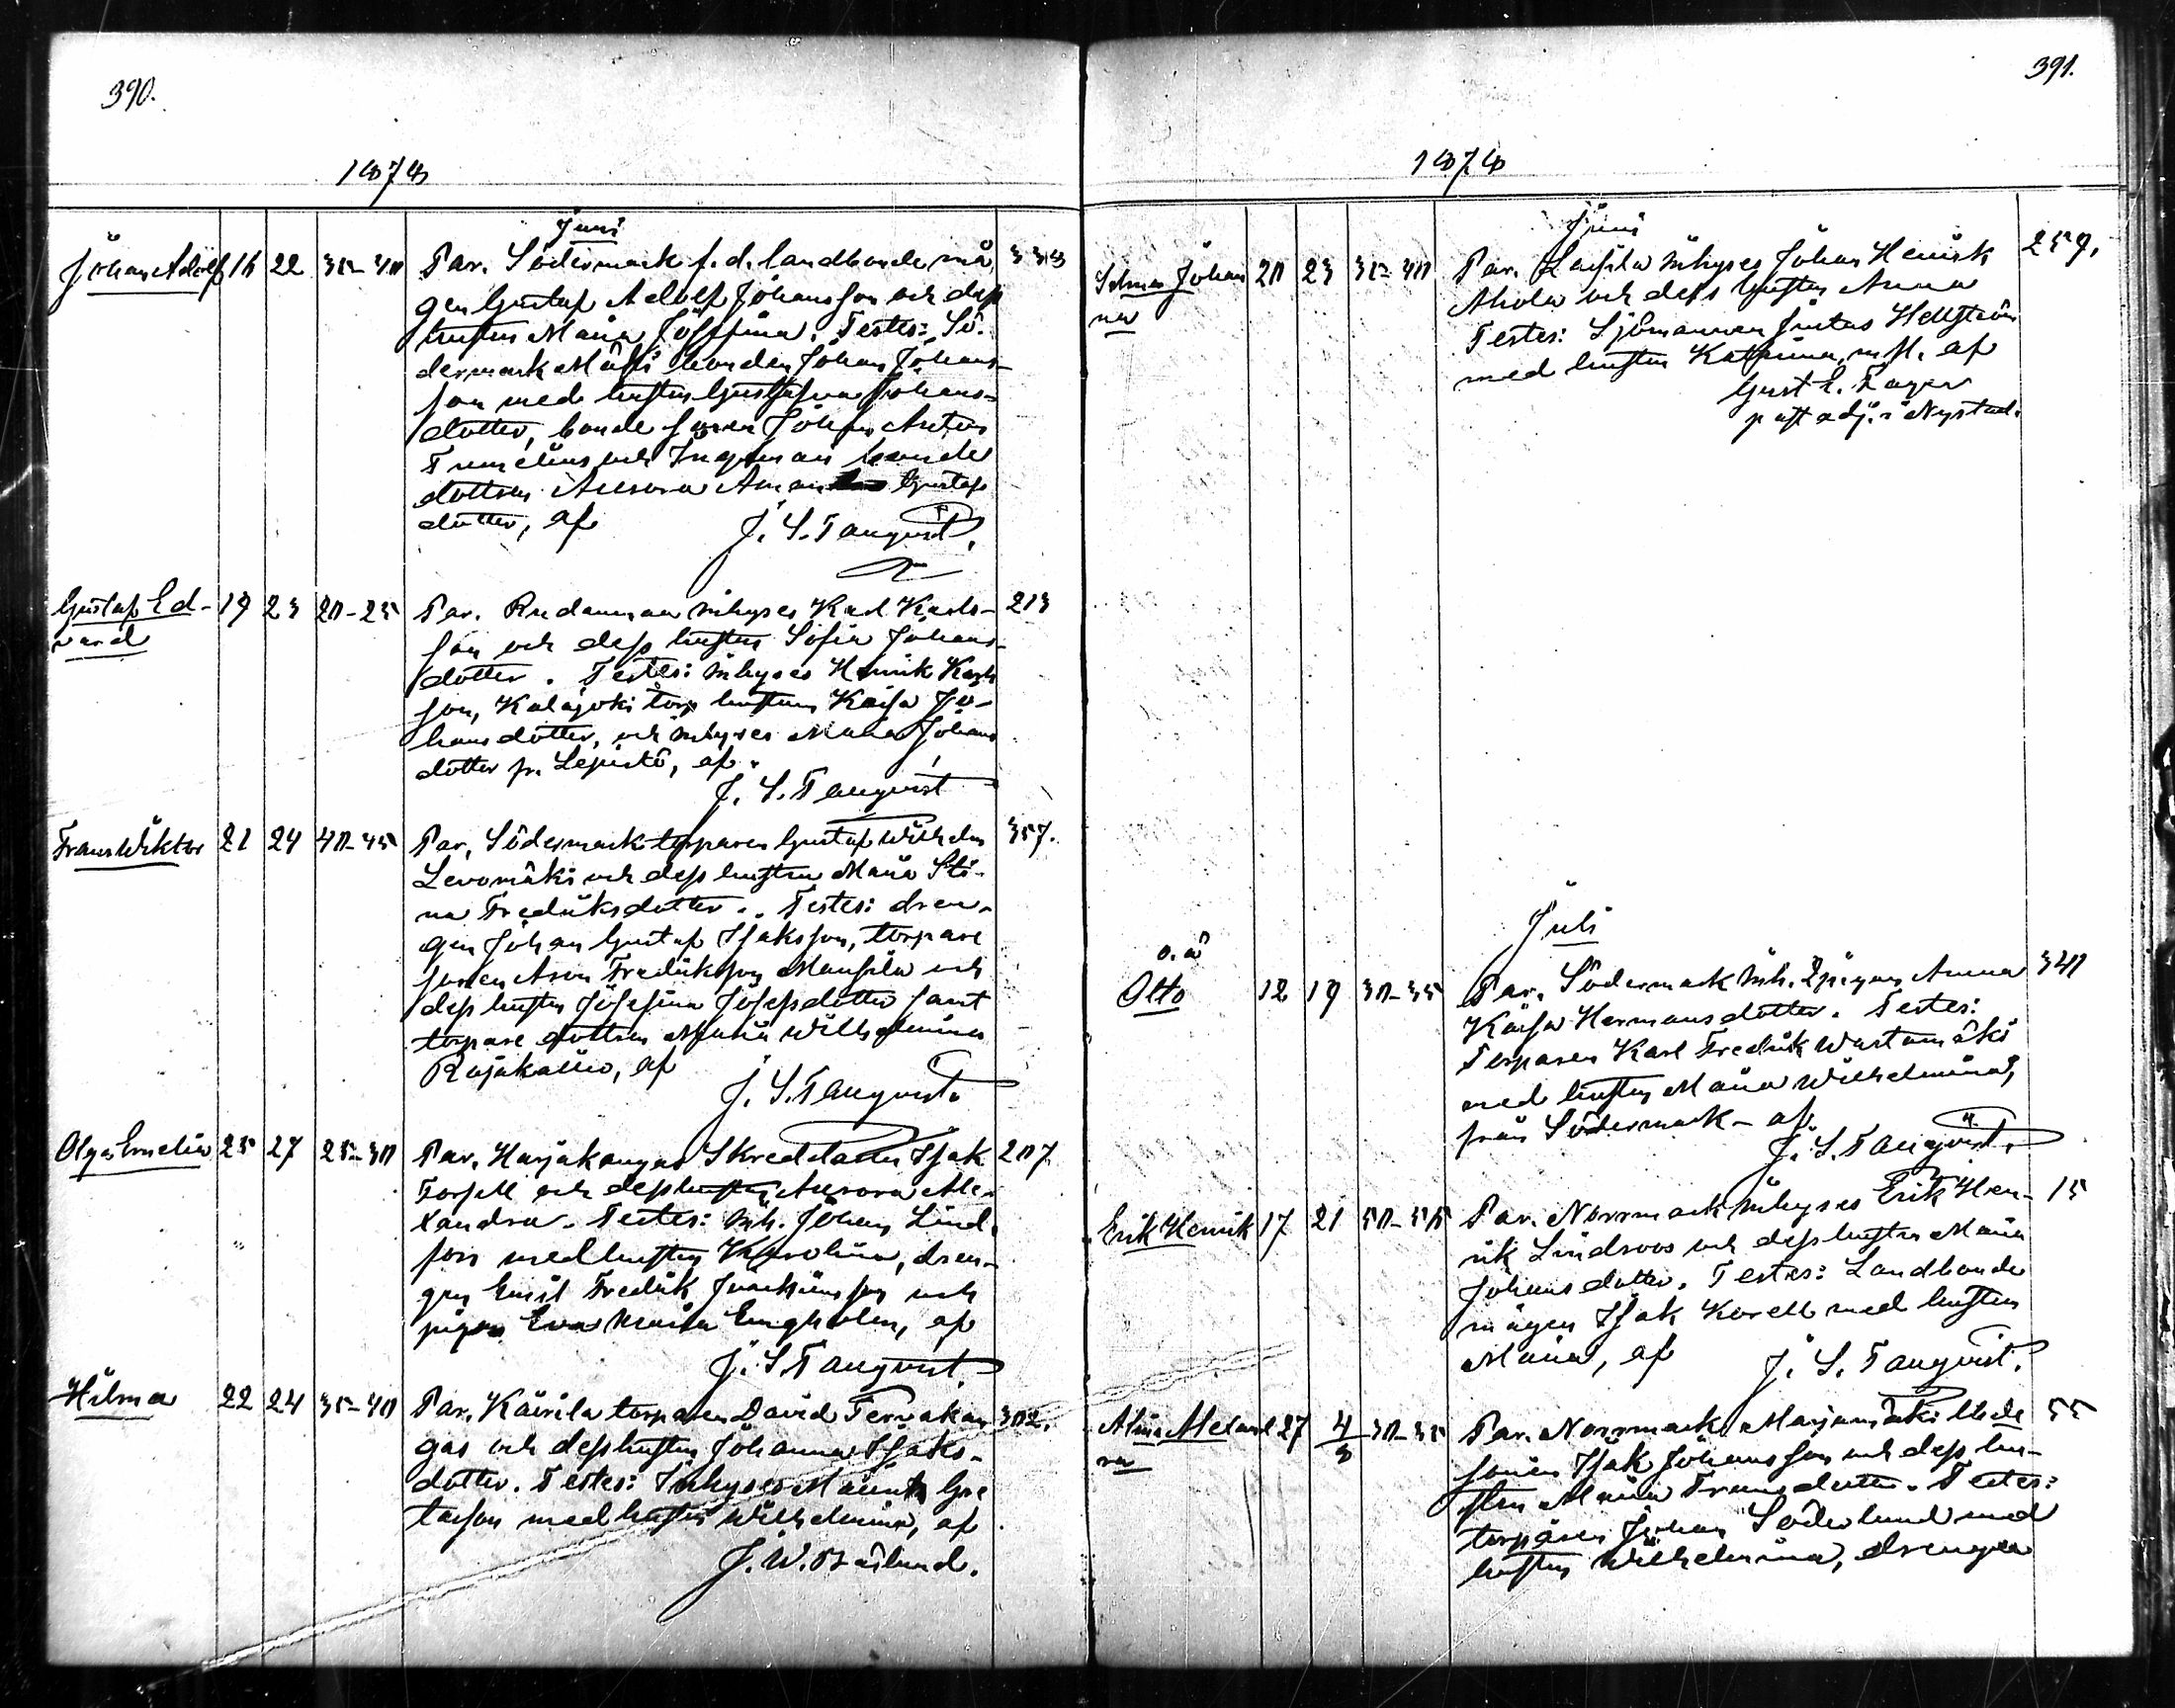 390.
1878
Juni
Johan Adolf 16 22 35-40 Par. Södermark f. d. landbonde må 338
gen Gustaf Adolf Johansson och dess
hustru Maria Josefina. Testes: Sö-
dermark Mäki bonden Johan Johans-
son med hustru Gustafva Johans-
dotter, bonde sonen Johan Anton
och Ingman bonde
dottren Aurora Amanda Gustafs
dotter, af
J. S. Tanqvist.
Gustaf Ed- 19 23 20-25 Par. Rudanmaa inhyses Karl Karls- 213
vard
son och dess hustru Sofia Johans-
dotter. Testes: inhyses Henrik Karls
son, Kalajoki torp hustrun Kaisa Jo-
hansdotter, och inhyses Maria Johans
dotter fr. Lepistö, af
J. S. Tanqvist
Frans Wiktor 21 24 40-45 Par. Södermark torparen Gustaf Wilhelm 357.
Levomäki och dess hustru Maria Sti-
na Fredriksdotter. Testes: dren-
gen Johan Gustaf Isaksson, torpare
sonen Aron Fredriksson Mansila och
dess hustru Josefina Josefsdotter samt
torpare dottren Maria Wilhelmina
Rajakallio, af
J. S. Tanqvist.
Olga Emelia 25 27 25-30 Par. Harjakangas Skreddaren Isak 207
Forsell och dess hustru Aurora Ale-
xandra. Testes: inh. Johan Lind-
fors med hustru Karolina, dren-
gen Emil Fredrik Joachimsson och
pigan Eva Maria Engholm, af
J. S. Tanqvist.
Hilma 22 24 35-40 Par. Kairila torparen David Tervakan 302.
gas och dess hustru Johanna Isaks-
dotter. Testes: Inhyses Maunts Gus
tafson med hustru Wilhelmina, af
J. W. Bäcklund.
391.
1878
Juni
Selma Johan 20 23 35-40 Par. Lassila inhyses Johan Henrik 259.
na
Ahola och dess hustru Anna
Testes: Sjömannen Justus Hellström
med hustru Katarina, m. fl. af
Gust. E. Fager
past. adj. i Nystad.
Juli
o. ä
Otto 12 19 30-35 Par. Södermark inh. pigan Anna 340
Kaisa Hermansdotter. Testes:
Torparen Karl Fredrik Wastamäki
med hustru Maria Wilhelmina,
från Södermark - af
J. S. Tanqvist.
Erik Henrik 17 21 50-55 Par. Norrmark inhyses Erik Hen- 15
rik Lindroos och dess hustru Maria
Johansdotter. Testes: Landbonde
mågen Isak Korell med hustru
Maria, af
J. S. Tanqvist.
27 4/8 30-35 Par. Norrmark Marjamäki 55
sonen Isak Johansson och dess hu-
stru Maria Fransdotter. Testes:
torparen Johan Söderlund med
hustru Wilhelmina, drengen